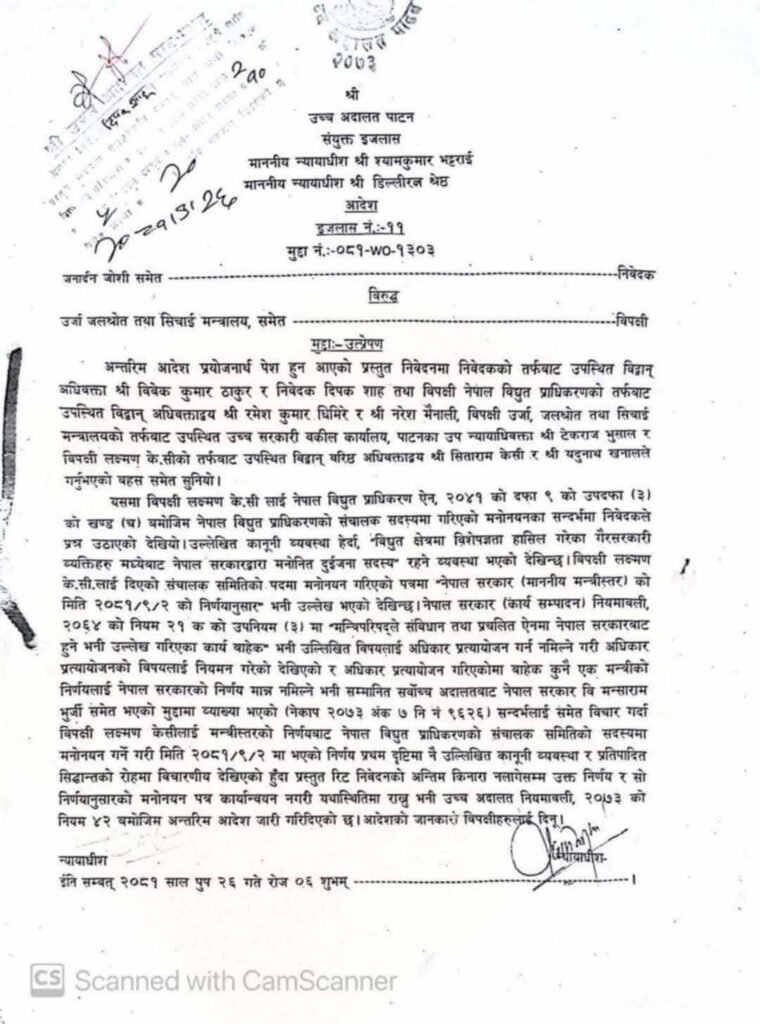 २०७३
श्री
उच्च अदालत पाटन
संयुक्त इजलास
माननीय न्यायाधीश श्री श्यामकुमार भट्टराई
माननीय न्यायाधीश श्री डिल्लीरत्न श्रेष्ठ
आदेश
इजलास नं.:-११
मुद्दा नं.:-०८१-WO-१३०३
जनार्दन जोशी समेत ---------- निवेदक
विरुद्ध
उर्जा जलश्रोत तथा सिचाई मन्त्रालय, समेत ---------- विपक्षी
मुद्दाः- उत्प्रेषण
अन्तरिम आदेश प्रयोजनार्थ पेश हुन आएको प्रस्तुत निवेदनमा निवेदकको तर्फबाट उपस्थित विद्वान्
अधिवक्ता श्री विवेक कुमार ठाकुर र निवेदक दिपक शाह तथा विपक्षी नेपाल विद्युत प्राधिकरणको तर्फबाट
उपस्थित विद्वान् अधिवक्ताद्वय श्री रमेश कुमार घिमिरे र श्री नरेश मैनाली, विपक्षी उर्जा, जलश्रोत तथा सिचाई
मन्त्रालयको तर्फबाट उपस्थित उच्च सरकारी वकील कार्यालय, पाटनका उप न्यायाधिवक्ता श्री टेकराज भुसाल र
विपक्षी लक्ष्मण के.सीको तर्फबाट उपस्थित विद्वान् वरिष्ठ अधिवक्ताद्वय श्री सिताराम केसी र श्री यदुनाथ खनालले
गर्नुभएको बहस समेत सुनियो।
यसमा विपक्षी लक्ष्मण के.सी लाई नेपाल विद्युत प्राधिकरण ऐन, २०४१ को दफा ९ को उपदफा (३)
को खण्ड (च) बमोजिम नेपाल विद्युत प्राधिकरणको संचालक सदस्यमा गरिएको मनोनयनका सन्दर्भमा निवेदकले
प्रश्न उठाएको देखियो। उल्लेखित कानूनी व्यवस्था हेर्दा, "विद्युत क्षेत्रमा विशेषज्ञता हासिल गरेका गैरसरकारी
व्यक्तिहरु मध्येबाट नेपाल सरकारद्वारा मनोनित दुईजना सदस्य" रहने व्यवस्था भएको देखिन्छ। विपक्षी लक्ष्मण
के.सी.लाई दिएको संचालक समितिको पदमा मनोनयन गरिएको पत्रमा "नेपाल सरकार (माननीय मन्त्रीस्तर) को
मिति २०८१/९/२ को निर्णयानुसार" भनी उल्लेख भएको देखिन्छ। नेपाल सरकार (कार्य सम्पादन) नियमावली,
२०६४ को नियम २१ क को उपनियम (३) मा "मन्त्रिपरिषद्ले संविधान तथा प्रचलित ऐनमा नेपाल सरकारबाट
हुने भनी उल्लेख गरिएका कार्य बाहेक" भनी उल्लिखित विषयलाई अधिकार प्रत्यायोजन गर्न नमिल्ने गरी अधिकार
प्रत्यायोजनको विषयलाई नियमन गरेको देखिएको र अधिकार प्रत्यायोजन गरिएकोमा बाहेक कुनै एक मन्त्रीको
निर्णयलाई नेपाल सरकारको निर्णय मान्न नमिल्ने भनी सम्मानित सर्वोच्च अदालतबाट नेपाल सरकार वि मन्साराम
भुर्जी समेत भएको मुद्दामा व्याख्या भएको (नेकाप २०७३ अंक ७ नि नं ९६२६) सन्दर्भलाई समेत विचार गर्दा
विपक्षी लक्ष्मण केसीलाई मन्त्रीस्तरको निर्णयबाट नेपाल विद्युत प्राधिकरणको संचालक समितिको सदस्यमा
मनोनयन गर्ने गरी मिति २०८१/९/२ मा भएको निर्णय प्रथम दृष्टिमा नै उल्लिखित कानूनी व्यवस्था र प्रतिपादित
सिद्धान्तको रोहमा विचारणीय देखिएको हुँदा प्रस्तुत रिट निवेदनको अन्तिम किनारा नलागेसम्म उक्त निर्णय र सो
निर्णयानुसारको मनोनयन पत्र कार्यान्वयन नगरी यथास्थितिमा राख्नु भनी उच्च अदालत नियमावली, २०७३ को
नियम ४२ बमोजिम अन्तरिम आदेश जारी गरिदिएको छ। आदेशको जानकारी विपक्षीहरुलाई दिनू।
न्यायाधीश
न्यायाधीश
ईति सम्वत् २०८१ साल पुष २६ गते रोज ०६ शुभम् ----------।
CS Scanned with CamScanner